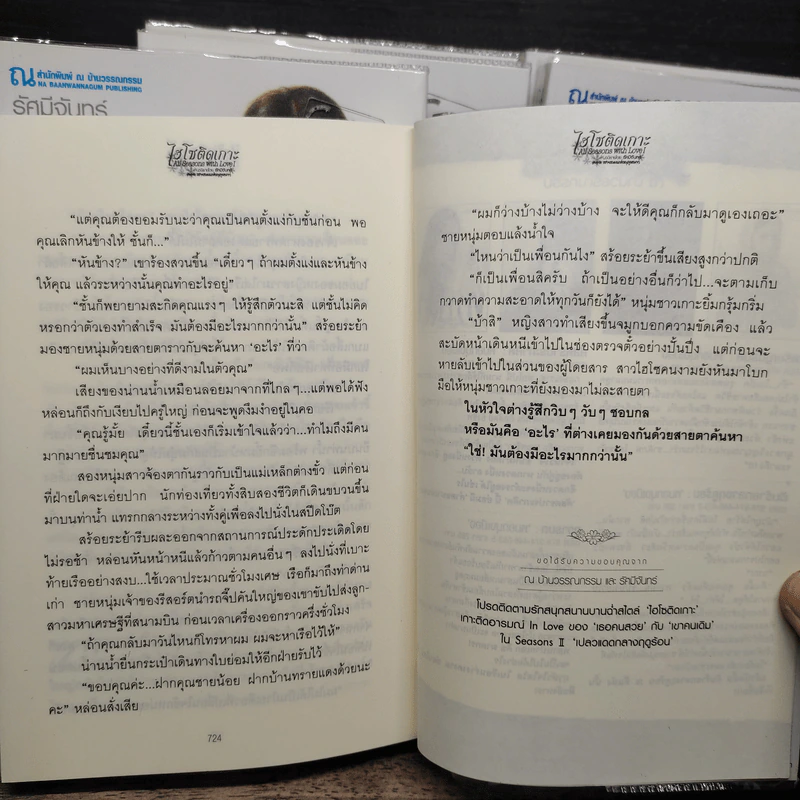 ณ สำนักพิมพ์ ณ บ้านวรรณกรรม
NA BAANWANNAGUM PUBLISHING
รัศมีจันทร์
ไฮโซติดเกาะ
All Seasons With Love I
“แต่คุณต้องยอมรับนะว่าคุณเป็นคนตั้งแง่กับชั้นก่อน พอ
คุณเลิกหันข้างให้ ชั้นก็...”
“หันข้าง?” เขาร้องสวนขึ้น “เดี๋ยวๆ ถ้าผมตั้งแง่และหันข้าง
ให้คุณ แล้วระหว่างนั้นคุณทำอะไรอยู่”
“ชั้นก็พยายามสะกิดคุณแรงๆ ให้รู้สึกตัวนะสิ แต่ชั้นไม่คิด
หรอกว่าตัวเองทำสำเร็จ มันต้องมีอะไรมากกว่านั้น” สร้อยระย้า
มองชายหนุ่มด้วยสายตาราวกับจะค้นหา ‘อะไร’ ที่ว่า
“ผมเห็นบางอย่างที่ดีงามในตัวคุณ”
เสียงของน่านน้ำเหมือนลอยมาจากที่ไกลๆ...แต่พอได้ฟัง
หล่อนก็ถึงกับเงียบไปครู่ใหญ่ ก่อนจะพูดงึมงำอยู่ในคอ
“คุณรู้มั้ย เดี๋ยวนี้ชั้นเองก็เริ่มเข้าใจแล้วว่า...ทำไมถึงมีคน
มากมายชื่นชมคุณ”
สองหนุ่มสาวจ้องตากันราวกับเป็นแม่เหล็กต่างขั้ว แต่ก่อน
ที่ฝ่ายใดจะเอ่ยปาก นักท่องเที่ยวทั้งสิบสองชีวิตก็เดินขบวนขึ้น
มาบนท่าน้ำ แทรกกลางระหว่างทั้งคู่เพื่อลงไปนั่งในสปีดโบ๊ต
สร้อยระย้ารีบผละออกจากสถานการณ์ประดักประเดิดโดย
ไม่รอช้า หล่อนหันหน้าหนีแล้วก้าวตามคนอื่นๆ ลงไปนั่งที่เบาะ
ท้ายเรืออย่างสงบ...ใช้เวลาประมาณชั่วโมงเศษ เรือก็มาถึงท่าด่าน
เก่า ชายหนุ่มเจ้าของรีสอร์ตนำรถจี๊ปคันใหญ่ของเขาขับไปส่งลูก-
สาวมหาเศรษฐีที่สนามบิน ก่อนเวลาเครื่องออกราวครึ่งชั่วโมง
“ถ้าคุณกลับมาวันไหนก็โทรหาผม ผมจะหาเรือไว้ให้”
น่านน้ำยื่นกระเป๋าเดินทางใบย่อมให้อีกฝ่ายรับไว้
“ขอบคุณค่ะ...ฝากคุณชายน้อย ฝากบ้านทรายแดงด้วยนะ
คะ” หล่อนสั่งเสีย
724
ณ สำนักพิมพ์ ณ บ้านวรรณกรรม
ไฮโซติดเกาะ
All Seasons With Love I
“ผมก็ว่างบ้างไม่ว่างบ้าง จะให้ดีคุณก็กลับมาดูเองเถอะ”
ชายหนุ่มตอบแล้งน้ำใจ
“ไหนว่าเป็นเพื่อนกันไง” สร้อยระย้าขึ้นเสียงสูงกว่าปกติ
“ก็เป็นเพื่อนสิครับ ถ้าเป็นอย่างอื่นก็ว่าไป...จะตามเก็บ
กวาดทำความสะอาดให้ทุกวันก็ยังได้” หนุ่มชาวเกาะยิ้มกรุ้มกริ่ม
“บ้าสิ” หญิงสาวทำเสียงขึ้นจมูกบอกความขัดเคือง แล้ว
สะบัดหน้าเดินหนีเข้าไปในช่องตรวจตั๋วอย่างปั้นปึ่ง แต่ก่อนจะ
หายลับเข้าไปในส่วนของผู้โดยสาร สาวไฮโซคนงามยังหันมาโบก
มือให้หนุ่มชาวเกาะที่ยังมองมาไม่ละสายตา
ในหัวใจต่างรู้สึกวิบๆ วับๆ ชอบกล
หรือมันคือ ‘อะไร’ ที่ต่างเคยมองกันด้วยสายตาค้นหา
“ใช่! มันต้องมีอะไรมากกว่านั้น”
ขอได้รับความขอบคุณจาก
ณ บ้านวรรณกรรม และ รัศมีจันทร์
โปรดติดตามรักสนุกสนานบานฉ่ำสไตล์ ‘ไฮโซติดเกาะ’
เกาะติดอารมณ์ In Love ของ ‘เธอคนสวย’ กับ ‘เขาคนเดิม’
ใน Seasons II ‘เปลวแดดกลางฤดูร้อน’